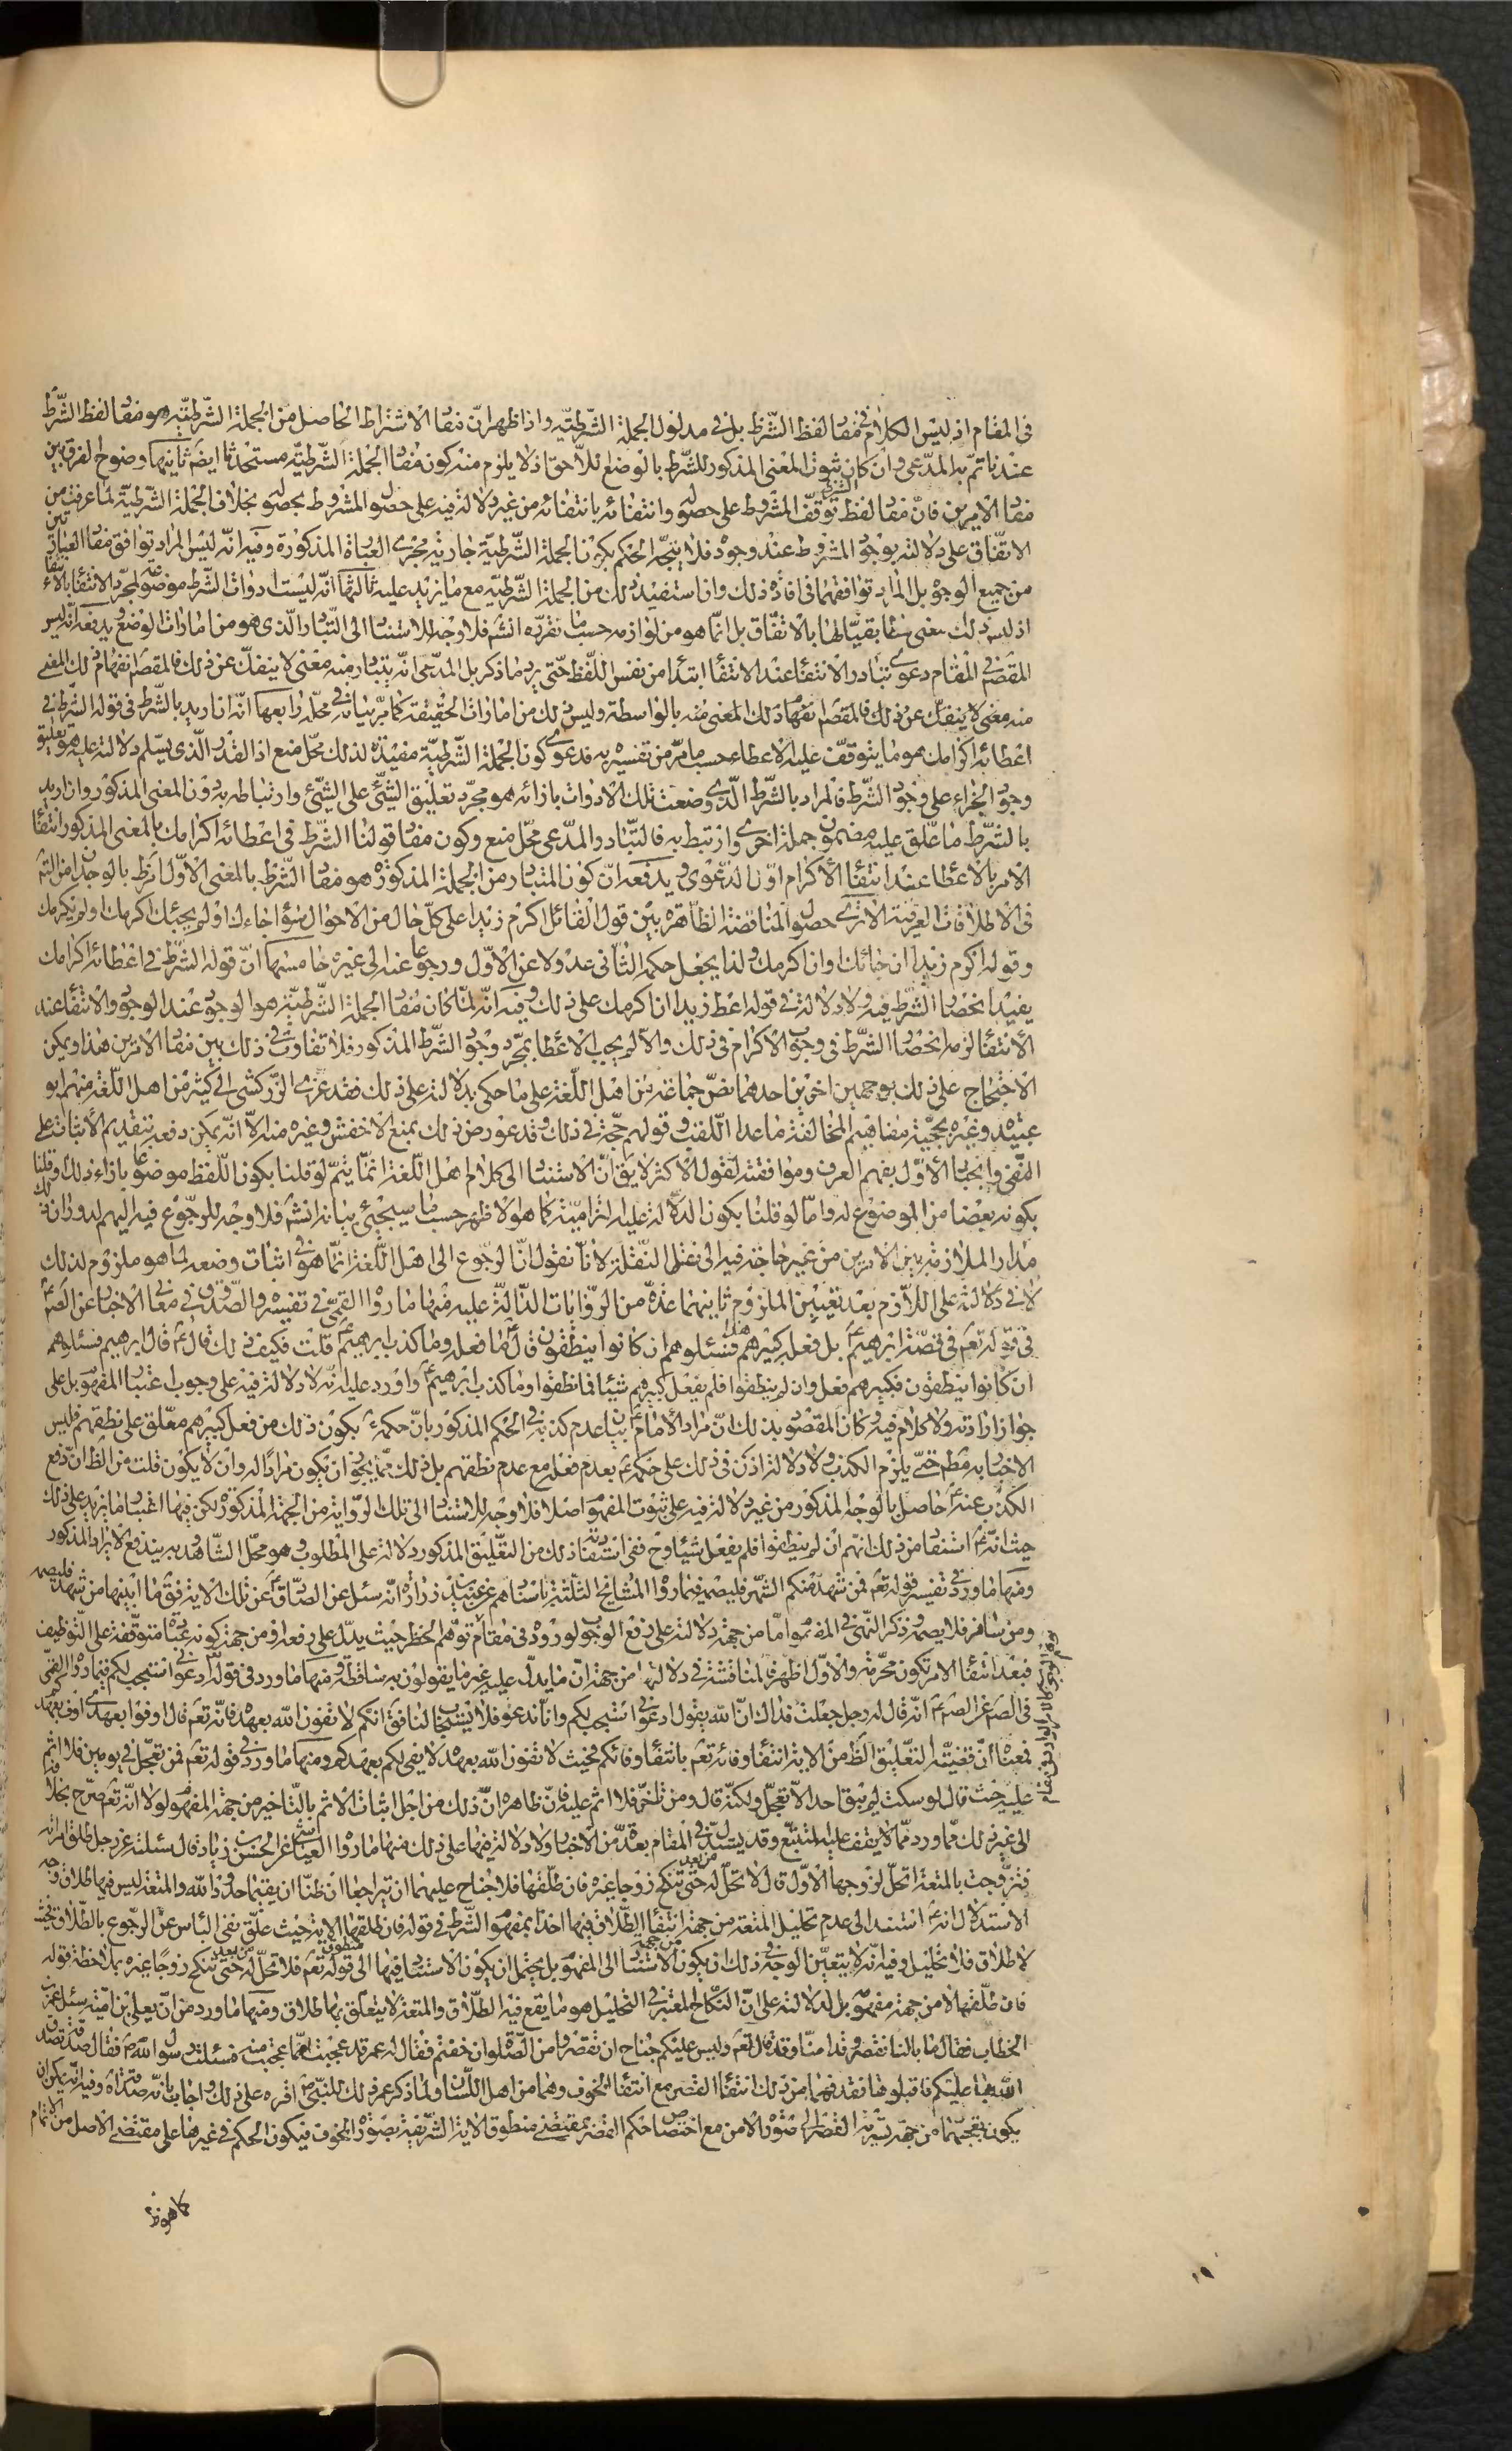 في المقام اذ ليس الكلام في مفاد لفظ الشّرط بل في مدلول الجملة الشّرطيّه واذا ظهر انّ مفاد الاشتراط الحاصل من الجملة الشّرطيّة هو مفاد لفظ الشّرط
عندنا تمّ به المدّعى وان كان ثبوت المعنى المذكور للشّرط بالوضع اللّاحق اذ لا يلزم منه كون مفاد الجملة الشّرطيّه مستحدثا ايضا ثانيها وضوح الفرق بين
مفاد الامرين فانّ مفاد لفظ الشرط توقّف المشروط على حصوله وانتفائه بانتفائه من غير دلالة فيه على حصول المشروط بحصوله بخلاف الجملة الشّرطيّة لما عرفت من
الاتّفاق على دلالته بوجود المشروط عند وجوده فلا يتّجه الحكم بكون الجملة الشّرطيّة جارية مجرى العبارة المذكورة وفيه انّه ليس المراد توافق مفاد العبارتين
من جميع الوجوه بل المراد توافقهما في افادة ذلك وان استفيد ذلك من الجملة الشّرطيّه مع ما يزيد عليه ثالثها انّه ليست ادوات الشّرط موضوعة لمجرّد الانتفاء بالانتفاء
اذ ليس ذلك معنى مطابقيّا لها بالاتّفاق بل انّما هو من لوازمه حسب ما نقرّره انشاء فلا وجه للاستناد الى التّبادر الّذي هو من امارات الوضع ويدفعه انّه ليس
المقصود في المقام دعوى تبادر الانتفاء عند الانتفاء ابتداء من نفس اللّفظ حتّى يرد ما ذكر بل المدّعى انّه يتبادر منه معنى لا ينفكّ عن ذلك فالمقصود انفهام ذلك المعنى
منه معنى لا ينفكّ عن ذلك فالمقصود انفهام ذلك المعنى منه بالواسطة وليس ذلك من امارات الحقيقة كما مرّ بيانه في محلّه رابعها انّه ان اريد بالشّرط في قوله الشرط في
اعطائه اكرامك هو ما يتوقّف عليه الاعطاء حسب ما مرّ من تفسيره به فدعوى كون الجملة الشّرطيّة مفيدة لذلك محلّ منع اذ القدر الّذي يسلّم دلالته عليه هو تعليق
وجود الجزاء على وجود الشّرط فالمراد بالشّرط الّذي وضعت تلك الادوات بازائه هو مجرّد تعليق الشّيء على الشّيء وارتباطه به دون المعنى المذكور وان اريد
بالشّرط ما علّق عليه مضمون جملة اخرى وارتبط به فالتّبادر المدّعى محلّ منع وكون مفاد قولنا الشّرط في اعطائه اكرامك بالمعنى المذكور انتفاء
الامر بالاعطاء عند انتفاء الاكرام اوّل الدّعوى ويدفعه انّ كون المتبادر من الجملة المذكورة هو مفاد الشّرط بالمعنى الاوّل امر ظ بالوجدان من التّتبّع
في الاطلاقات العرفية الا ترى حصول المناقضة الظّاهرة بين قول القائل اكرم زيدا على كلّ حال من الاحوال سواء جاءك او لم يجئك اكرمك او لم يكرمك
وقوله اكرم زيدا ان جائك او ان اكرمك ولذا يجعل حكمه الثّاني عدولا عن الاوّل ورجوعا عنه الى غيره خامسها انّ قوله الشّرط في اعطائه اكرامك
يفيد انحصار الشّرط فيه ولا دلالة في قوله اعط زيدا ان اكرمك على ذلك وفيه انّه لمّا كان مفاد الجملة الشّرطيّة هو الوجود عند الوجود والانتفاء عند
الانتفاء لزمه انحصار الشّرط في وجود الاكرام في ذلك والّا لم يجب الاعطاء بمجرّد وجود الشّرط المذكور فلا تفاوت في ذلك بين مفاد الامرين هذا ويمكن
الاحتجاج على ذلك بوجهين اخرين احدهما نصّ جماعة من اهل اللّغة على ما حكى بدلالته على ذلك فقد عزى الزّركشي الى كثير من اهل اللّغة منهم ابو
عبيده وغيره بحجّيّة مفاهيم المخالفة ما عدا اللّقب وقولهم حجّة في ذلك وقد عورض ذلك بمنع الاخفش وغيره منه الّا انّه يمكن دفعه بتقديم الاثبات على
النّفي وانجبار الاوّل بفهم العرف وموافقته لقول الاكثر لا يق انّ الاستناد الى كلام اهل اللّغة انّما يتمّ لو قلنا بكون اللّفظ موضوعا بازاء ذلك وقلنا
بكونه بعضا من الموضوع له وامّا لو قلنا بكون الدّلالة عليه التزاميّة كما هو الاظهر حسب ما سيجئ بيانه انشاء فلا وجه للرّجوع فيه اليهم لدوران ذلك
مدار الملازمة بين الامرين من غير حاجة فيه الى نقل النّقلة لانّا نقول انّ الرّجوع الى اهل اللّغة انّما هو في اثبات وضعه لما هو ملزوم لذلك
لا في دلالته على اللّازم بعد تعيين الملزوم ثانيهما عدّة من الرّوايات الدّالّة عليه منها ما رواه القمي في تفسيره والصّدوق في معاني الاخبار عن الصّادق ع
في قوله تعم في قصّة ابراهيم ع بل فعله كبيرهم هذا فسئلوهم ان كانوا ينطقون قال ع ما فعله وما كذب ابرهيم ع قلت فكيف ذلك قال ع قال ابراهيم فسئلوهم
ان كانوا ينطقون فكبيرهم فعل وان لم ينطقوا فلم يفعل كبيرهم شيئا فما نطقوا وما كذب ابرهيم ع واورد عليه انّه لا دلالة فيه على وجوب اعتبار المفهوم بل على
جواز ارادته ولا كلام فيه وكان المقصود بذلك انّ مراد الامام ع بيان عدم كذبه في الحكم المذكور بانّ حكمه ع بكون ذلك من فعل كبيرهم معلّق على نطقهم فليس
الاخبار به مط حتّى يلزم الكذب ولا دلالة اذن في ذلك على حكمه ع بعدم فعله مع عدم نطقهم بل ذلك ممّا يجوز ان يكون مرادا له وان لا يكون قلت من الظ انّ دفع
الكذب عنه ع حاصل بالوجه المذكور من غير دلالة فيه على ثبوت المفهوم اصلا فلا وجه للاستناد الى تلك الرّواية من الجهة المذكورة لكن فيها اعتبار ما يزيد على ذلك
حيث انّه ع استفاد من ذلك انّهم ان لم ينطقوا فلم يفعل شيئا وح ففي استفادته ذلك من التّعليق المذكور دلالة على المطلوب وهو محلّ الشّاهد وبه يندفع الايراد المذكور
ومنها ما ورد في تفسير قوله تعم فمن شهد منكم الشّهر فليصمه فيما رواه المشايخ الثّلثة باسنادهم عن عبيد بن زراره انّه سئل عن الصّادق ع عن تلك الاية فق ما ابينها من شهد فليصمه
ومن سافر فلا يصمه وذكر النّهي في المفهوم امّا من جهة دلالته على رفع الوجوب لوروده في مقام توهّم الحظر حيث يدلّ على رفعه او من جهة كونه عبادة متوقّفة على التّوظيف
فبعد انتفاء الامر تكون محرّمة والاوّل اظهر فالمناقشة في دلالته من جهة انّ ما يدلّ عليه غير ما يقولون به ساقطة ومنها ما ورد في قوله تعم ادعوني استجب لكم فيما رواه القمّي
في الصّ عن الصّادق ع انّه قال له رجل جعلت فداك انّ الله يقول ادعوني استجب لكم وانّا ندعو فلا يستجاب لنا فق انّكم لا تفون الله بعهده فانّه تعم قال اوفوا بعهدي اوف بعهدكم
فمعناه انّ قضيّة التّعليق الظّ من الاية انتفاء وفائه تعم بانتفاء وفائكم فحيث لا تفون الله بعهده لا يفي لكم بعهدكم ومنها ما ورد في قوله تعم فمن تعجّل في يومين فلا اثم
عليه حيث قال لو سكت لم يبق احد الّا تعجّل ولكنّه قال ومن تاخّر فلا اثم عليه فانّ ظاهره انّ ذلك من اجل اثبات الاثم بالتّاخير من جهة المفهوم لولا انّه تعم صرّح بخلافه
الى غير ذلك ممّا ورد ممّا لا يقف عليه المتتبّع وقد يستدلّ في المقام بعدّة من الاخبار ولا دلالة فيها على ذلك منها ما رواه العيّاشي عن الحسن بن زياد قال سئلته عن رجل طلّق امراته
فتزوّجت بالمتعة اتحلّ لزوجها الاوّل قال لا تحلّ له من بعد حتّى تنكح زوجا غيره فان طلّقها فلا جناح عليهما ان يتراجعا ان ظنّا ان يقيما حدود الله والمتعة ليس فيها طلاق وجه
الاستدلال انّه ع استند الى عدم تحليل المتعة من جهة انتفاء الطّلاق فيها اخذا بمفهوم الشّرط في قوله فان طلقها الاية حيث علّق نفي الباس عن الرّجوع بالطّلاق فحيث
لا طلاق فلا تحليل وفيه انّه لا يتعيّن الوجه في ذلك ان يكون من جهة الاستناد الى المفهوم بل يحتمل ان يكون الاستناد فيها الى منطوق قوله تعم فلا تحلّ له من بعد حتّى تنكح زوجا غيره بملاحظة قوله
فان طلّقها لا من جهة مفهومه بل لدلالته على انّ النّكاح المعتبر في التّحليل هو ما يقع فيه الطّلاق والمتعة لا يتعلّق بها طلاق ومنها ما ورد من انّ يعلى بن اميّه سئل عمر بن
الخطاب فقال ما بالنا نقصر وقد امنّا وقد قال تعم وليس عليكم جناح ان تقصروا من الصّلوة ان خفتم فقال له عمر قد عجبت ممّا عجبت منه فسئلت رسول الله ص فقال صدقة تصدّق
الله بها عليكم فاقبلوها فقد فهما من ذلك انتفاء القصر مع انتفاء الخوف وهما من اهل اللّسان ولما ذكر عمر ذلك للنبّي ص اقره على ذلك واجاب بانّه صدقة وفيه انّه يمكن ان
يكون تعجّبهما من جهة تسرية القصر الى صورة الامن مع اختصاص حكم القصر بمقتضى منطوق الاية الشّريفة بصورة الخوف فيكون الحكم في غيرها على مقتضى الاصل من الاتمام
كما هو ظ